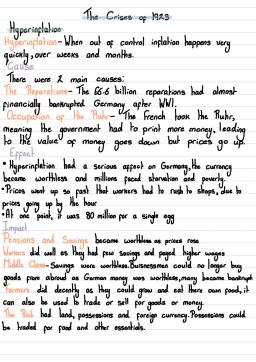 The Crises of 1923
Hyperinflation
Hyperinflation- When out of control inflation happens very
quickly, over weeks and months.
Cause
There were 2 main causes:
The Reparations- The £6.6 billion reparations had almost
financially bankrupted Germany after WW1.
Occupation of the Ruhr- The French took the Ruhr,
meaning the government had to print more money, leading
to the value of money goes down but prices go up.
Effect
• Hyperinflation had a serious effect on Germany, the currency
became worthless and millions faced starvation and poverty.
• Prices went up so fast that workers had to rush to shops, due to
prices going up by the hour
• At one point, it was 80 million for a single egg
Impact
Pensions and Savings became worthless as prices rose
Workers did well as they had few savings and paged higher wages
Middle Class- Savings were worthless. Buisnessmen could no longer buy
goods from abroad as German money was worthless, many became bankrupt
Farmers did decently as they could grow and eat there own food, it
can also be used to trade or sell for goods or money.
The Rich had land, possessions and foreign currency. Possessions could
be traded for food and other essentials.